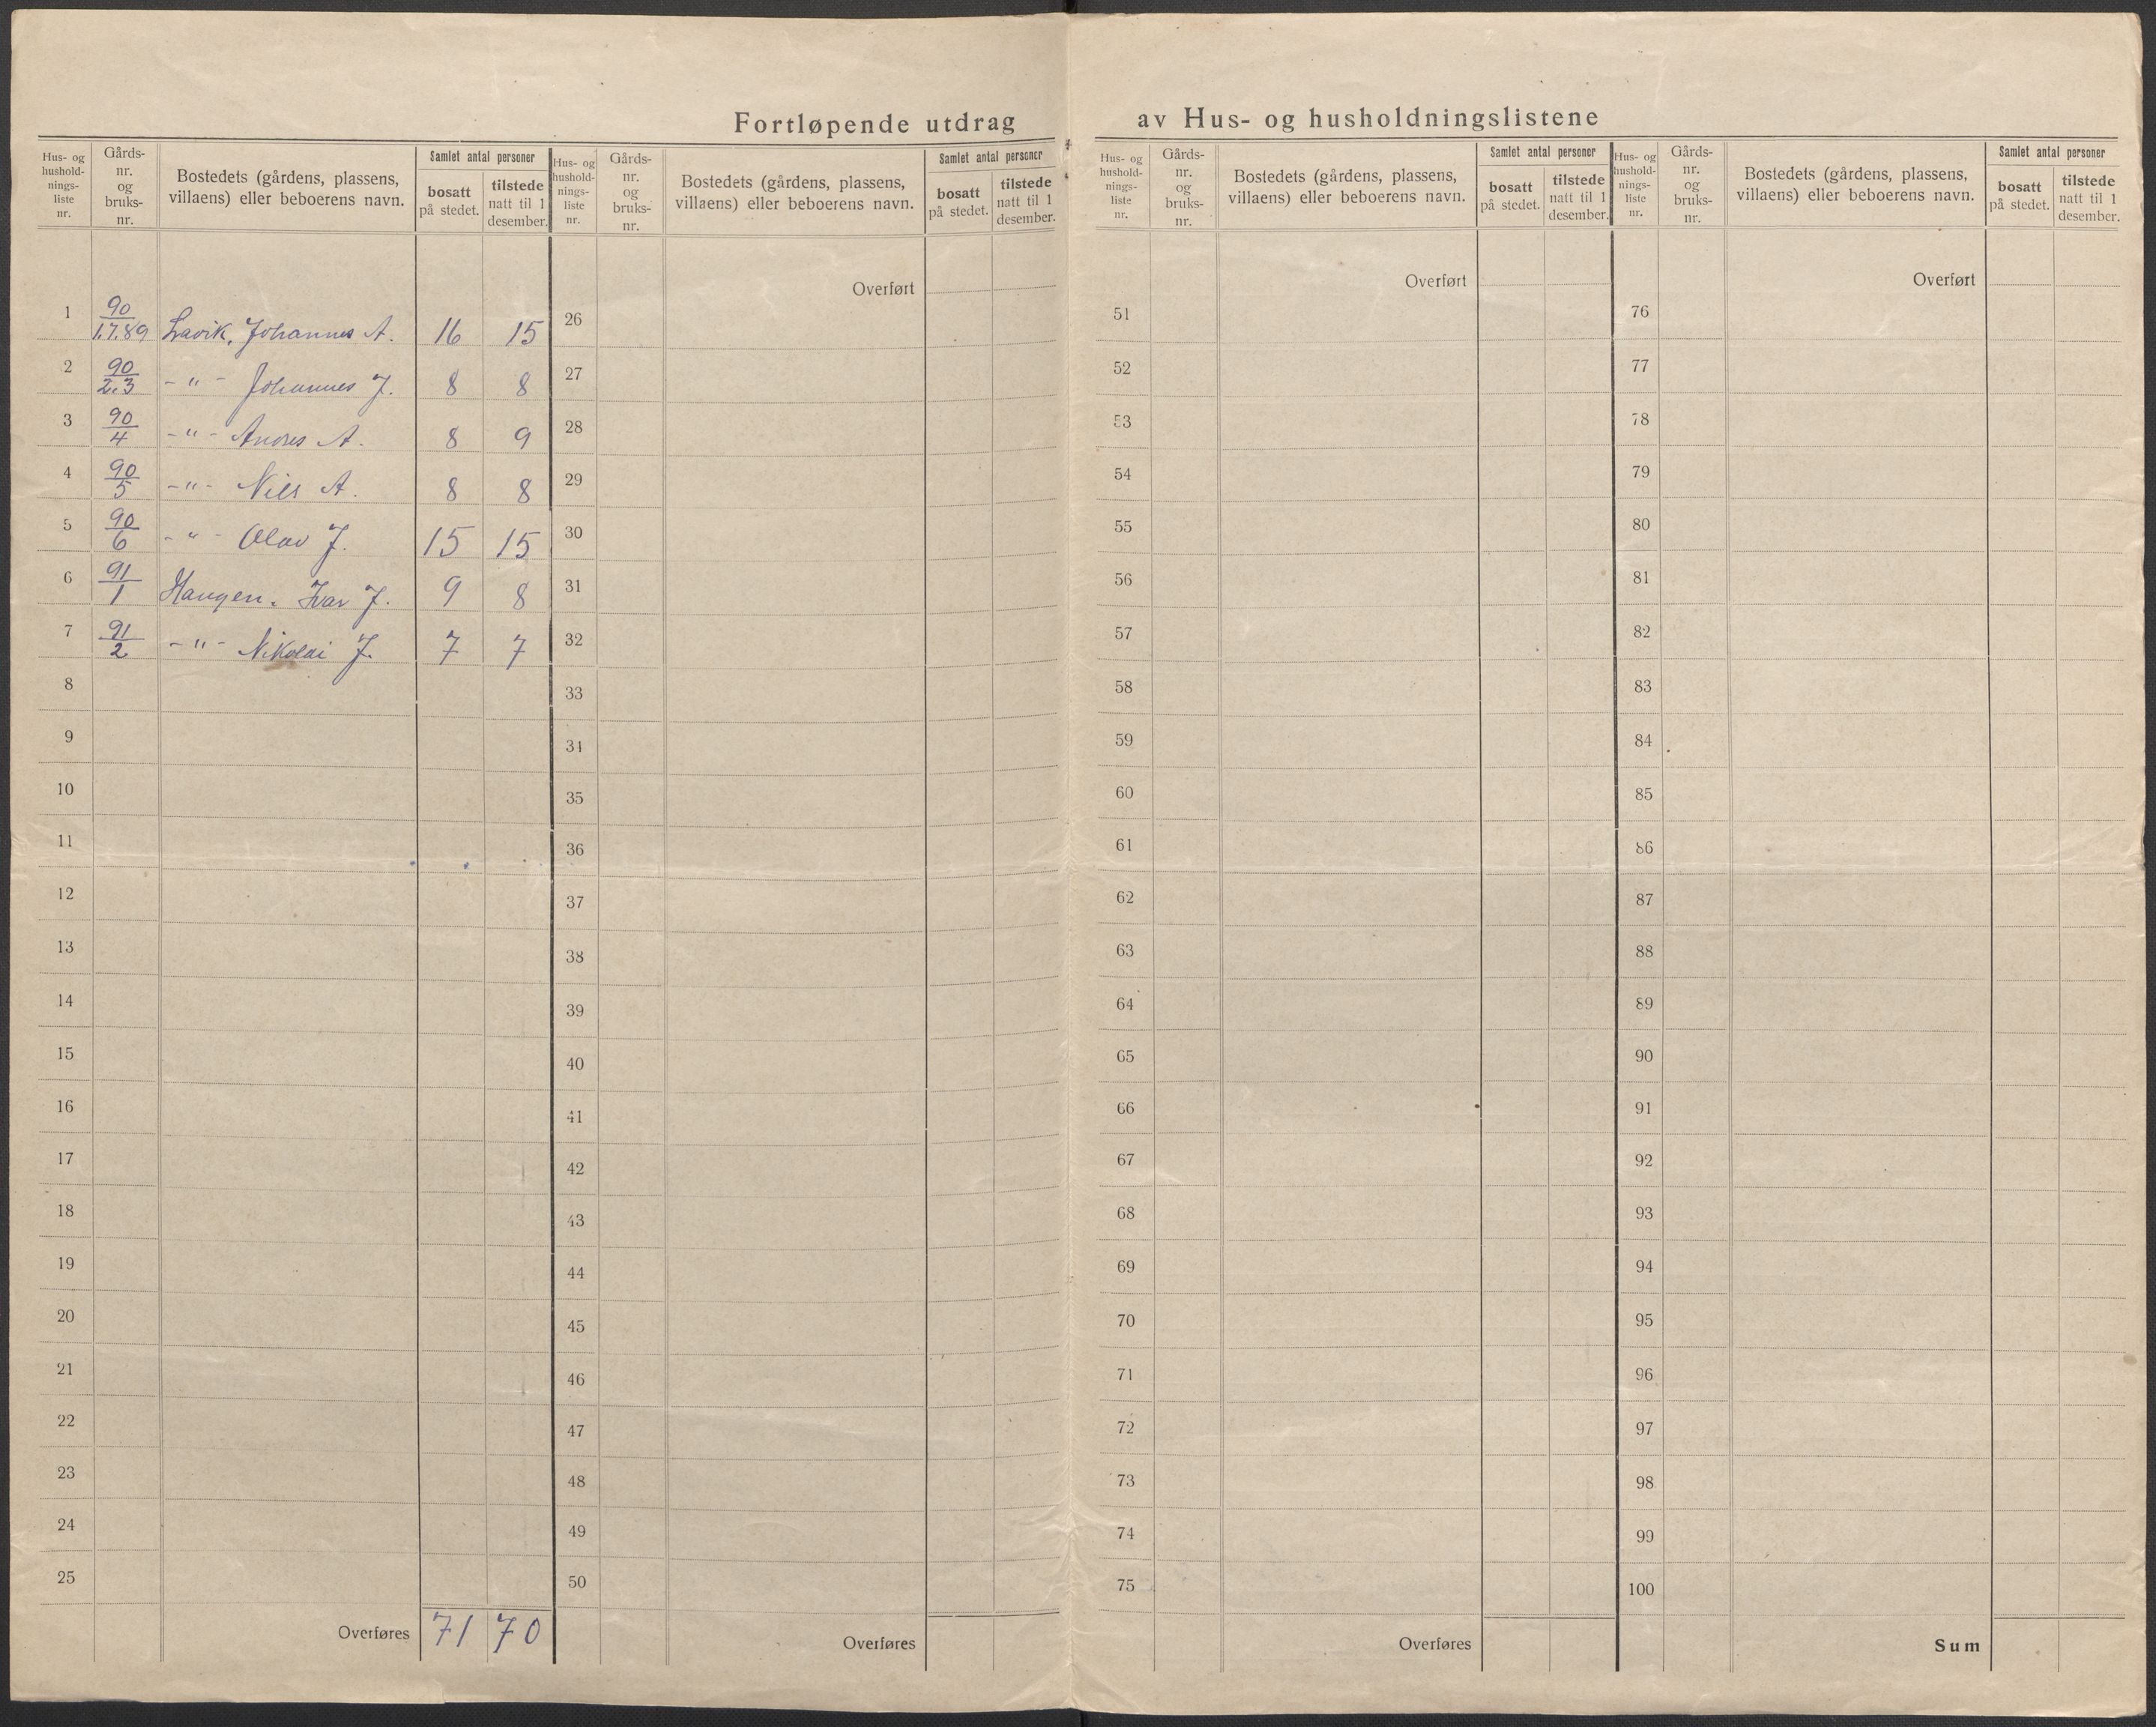 Fortløpende utdrag av Hus- og husholdningslistene
Hus- og hushold- nings- liste nr.
Gårds- nr. og bruks- nr.
Bostedets (gårdens, plassens, villaens) eller beboerens navn.
Samlet antal personer
bosatt på stedet.
tilstede natt til 1 desember.
Hus- og hushold- nings- liste nr.
Gårds- nr. og bruks- nr.
Bostedets (gårdens, plassens, villaens) eller beboerens navn.
Samlet antal personer
bosatt på stedet.
tilstede natt til 1 desember.
Hus- og hushold- nings- liste nr.
Gårds- nr. og bruks- nr.
Bostedets (gårdens, plassens, villaens) eller beboerens navn.
Samlet antal personer
bosatt på stedet.
tilstede natt til 1 desember.
Hus- og hushold- nings- liste nr.
Gårds- nr. og bruks- nr.
Bostedets (gårdens, plassens, villaens) eller beboerens navn.
Samlet antal personer
bosatt på stedet.
tilstede natt til 1 desember.
1 90/1.7.89 Lavik, Johannes A. 16 15
2 90/2.3 -"- Johannes J. 8 8
3 90/4 -"- Andres A. 8 9
4 90/5 -"- Nils A. 8 8
5 90/6 -"- Olav J. 15 15
6 91/1 Haugen. Ivar J. 9 8
7 91/2 -"- Nikolai J. 7 7
8
9
10
11
12
13
14
15
16
17
18
19
20
21
22
23
24
25
Overføres 71 70
Overført
26
27
28
29
30
31
32
33
34
35
36
37
38
39
40
41
42
43
44
45
46
47
48
49
50
Overføres
Overført
51
52
53
54
55
56
57
58
59
60
61
62
63
64
65
66
67
68
69
70
71
72
73
74
75
Overføres
Overført
76
77
78
79
80
81
82
83
84
85
86
87
88
89
90
91
92
93
94
95
96
97
98
99
100
Sum